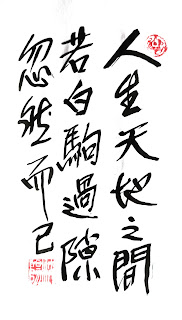 人生天地之間
若白駒過隙
忽然而已